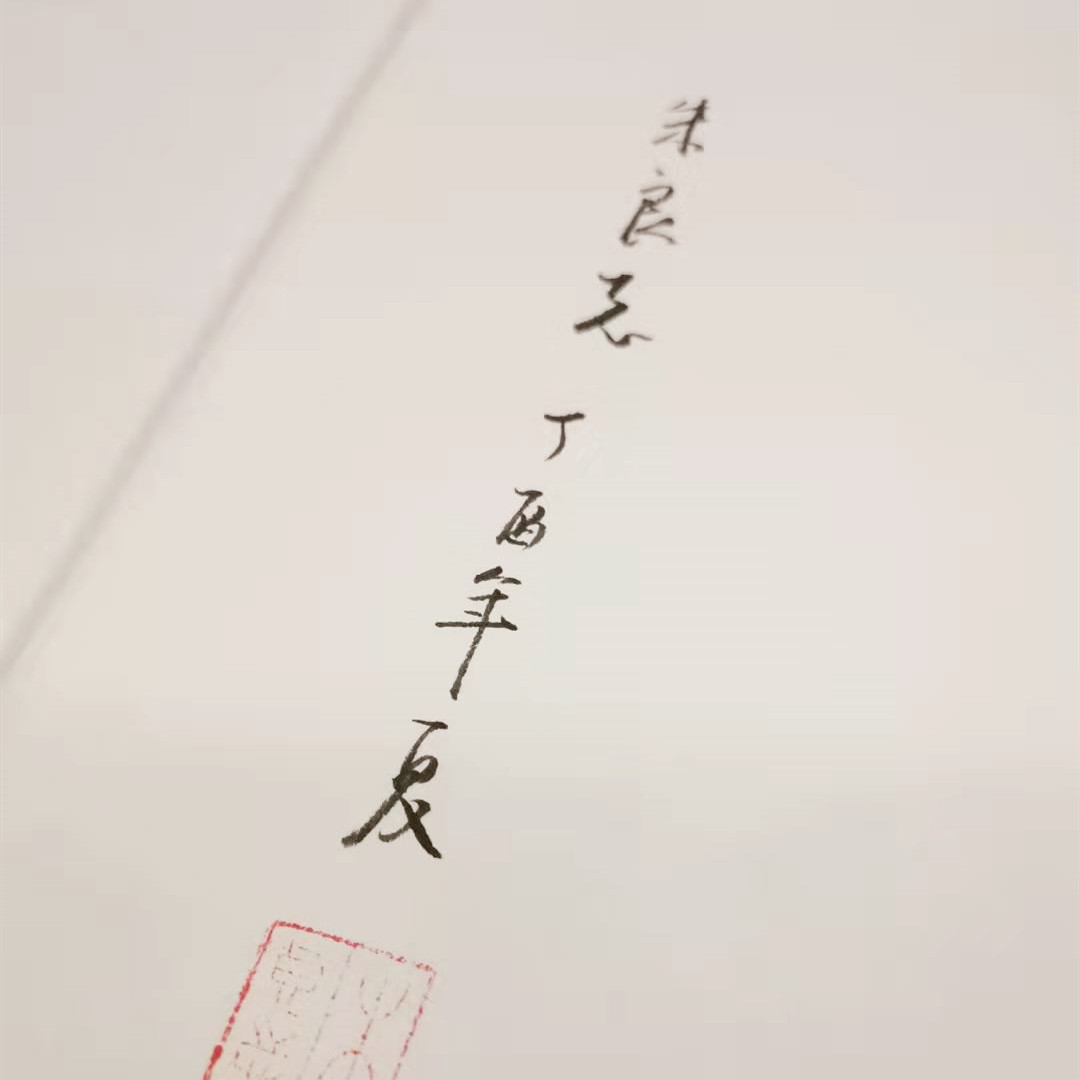 朱良志 丁酉年夏